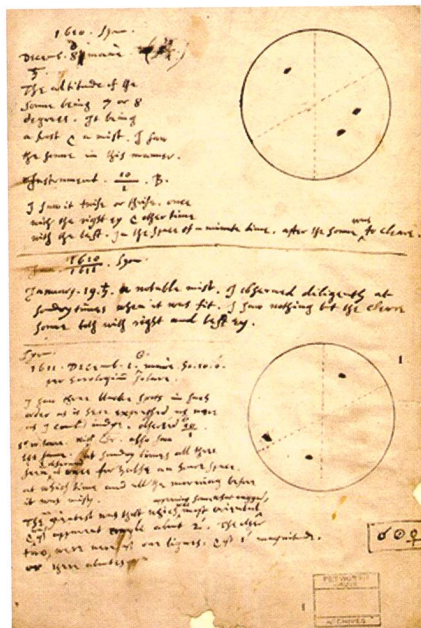 1610. Syon.
Decemb. 8 mane
The altitude of the
sonne being 7 or 8
degrees. It being
a frost & a mist. I saw
the sonne in this manner.
Instrument. 10/1. B.
I saw it twise or thrise. once
with the right ey & other time
with the left. In the space of a minute time. after the sonne was to cleare.
1610/1611 Syon.
January. 19. a notable mist. I observed diligently at
sondry times when it was fit. I saw nothing but the cleare
sonne both with right and left ey.
Syon.
1611. Decemb. 1. mane. ho. 10. 0.
per horologium solare.
I saw three blacke spots in such
order as is here expressed as nere
as I could judge. observed 10/1
also saw
the same. at sondry times all three
seen & observed once for halfe an houre space.
at which time and all the morning before
it was misty.
The greatest was that which was most oriental
apparent angle about 2'. The other
two, were nere of one bignes. 1' magnitude.
or there abouts.
PETWORTH
HOUSE
ARCHIVES